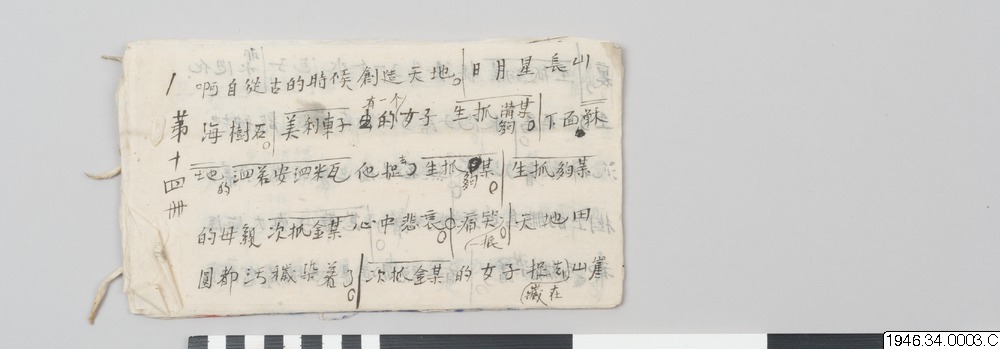 第十四冊
啊自從古的時候創造天地。日月星長山
海樹石。美利車子有一个的女子 生抓夠某。下面穌
地的泗若安泗米瓦 他把 生抓夠某。生抓夠某
的母親次抓金某 心中悲哀。痛哭。天地田
園都汚穢染着了。次抓金某的女子 山崖
藏在
1946.34.0003.C